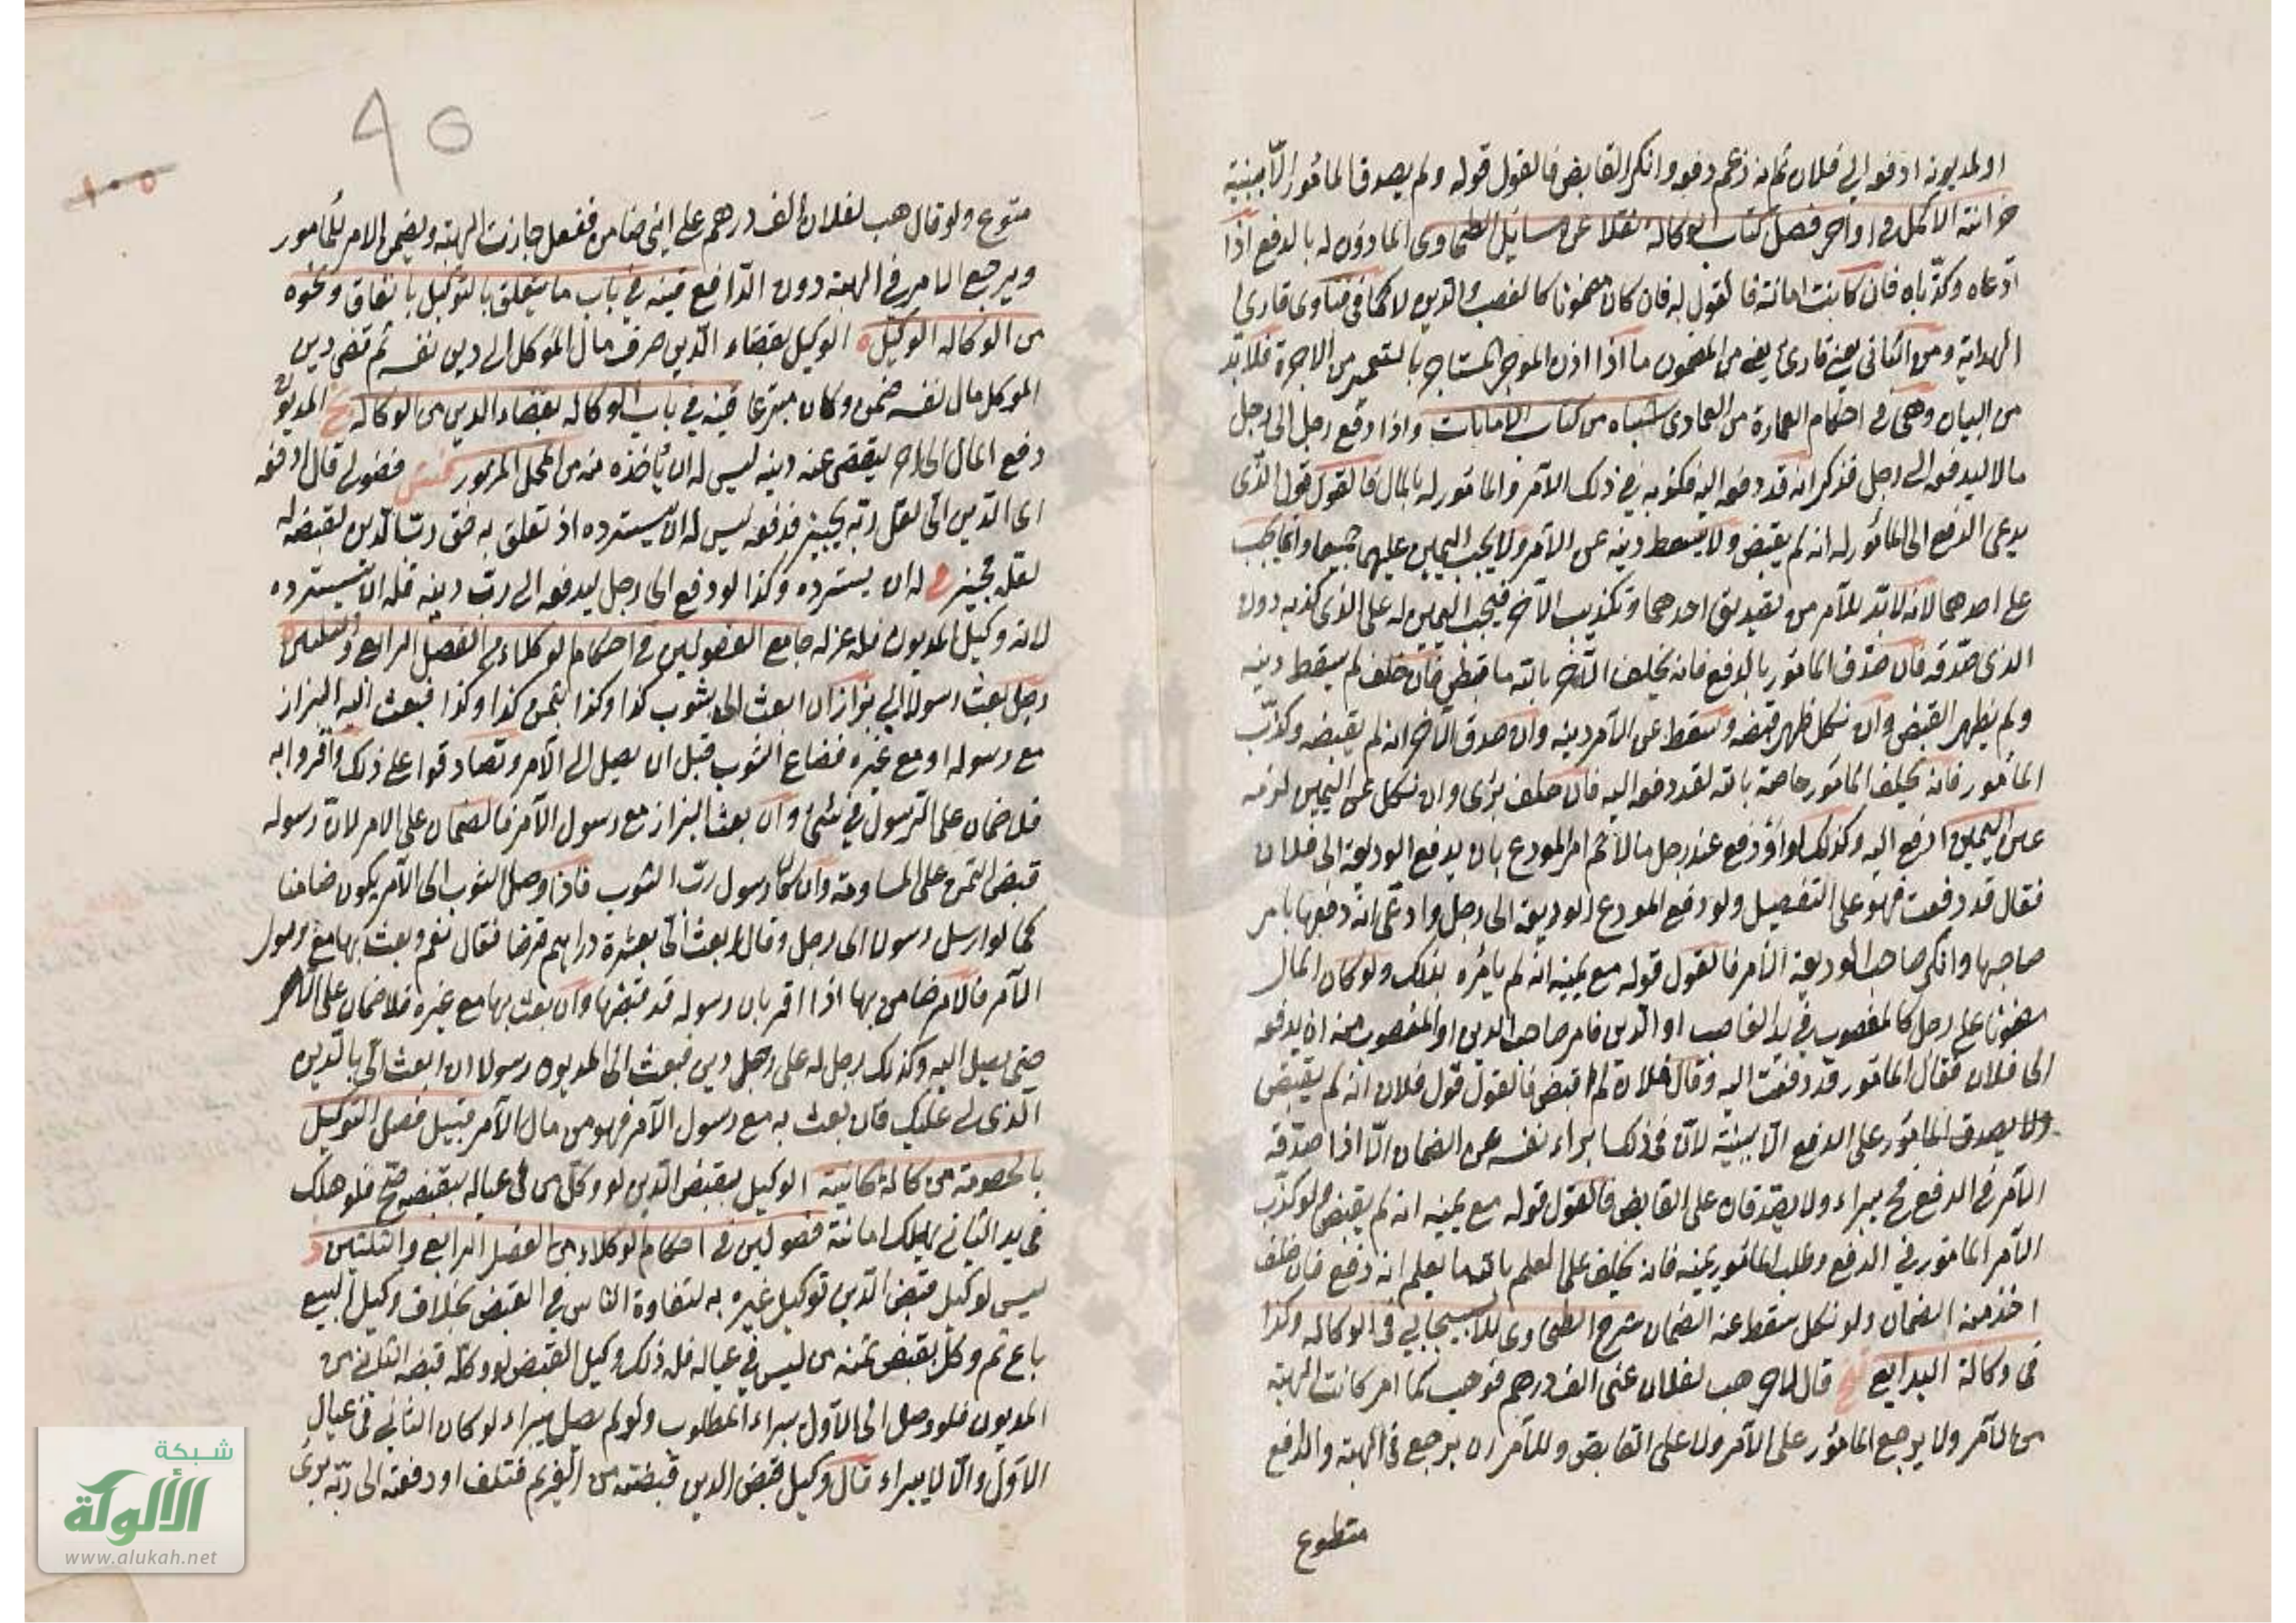 او لمديونه ادفعه الى فلان ثم انه زعم دفعه وانكر القابض فالقول قوله ولم يصدق المامور الا ببينة
خزانة الاكمل في اواخر فصل كتاب الوكالة نقلا عن مسايل الطحاوى المأذون له بالدفع اذا
ادعاه وكذباه فان كانت امانة فالقول له فان كان مضمونا كالغصب والدين لا كما في فتاوى قارئ
الهداية ومن الثاني يعنى قارئ يعنى من المضمون ما اذا اذن الموجر المستاجر بالتعمير من الاجرة فلا بد
من البيان وهى في احكام العمارة من العمادى اشباه من كتاب الامانات واذا دفع رجل الى رجل
مالا ليدفعه الى رجل فذكر انه قد دفعه اليه فكذبه في ذلك الآمر والمأمور له بالمال فالقول قول الذى
يدعى الدفع الى المأمور له انه لم يقبض ولا يسقط دينه عن الآمر ولا يجب اليمين عليهما جميعا وانما يجب
على احدهما لانه لا بد للآمر من تصديق احدهما وتكذيب الآخر فيجب اليمين له على الذى كذبه دون
الذى صدقه فان صدق المأمور بالدفع فانه يحلف الآخر بالله ما قبض فان حلف لم يسقط دينه
ولم يظهر القبض وان نكل ظهر قبضه وسقط عن الآمر دينه وان صدق الآخر انه لم يقبضه وكذب
المأمور فانه يحلف المأمور خاصة بالله لقد دفعه اليه فان حلف برئ وان نكل عن اليمين لزمه
عن اليمين ادفع اليه وكذلك لو اودع عند رجل مالا ثم امر المودع بان يدفع الوديعة الى فلان
فقال قد دفعت فهو على التفصيل ولو دفع المودع الوديعة الى رجل وادعى انه دفعها بامر
صاحبها وانكر صاحب الوديعة الامر فالقول قوله مع يمينه انه لم يأمره بذلك ولو كان المال
مضمونا على رجل كالمغصوب في يد الغاصب او الدين فامر صاحب الدين او المغصوب منه ان يدفعه
الى فلان فقال المأمور قد دفعت اليه وقال فلان لم اقبض فالقول قول فلان انه لم يقبض
ولا يصدق المأمور على الدفع الا ببينة لان في ذلك ابراء نفسه عن الضمان الا اذا صدقه
الآمر في الدفع فح يبراء ولا يصدقان على القابض فالقول قوله مع يمينه انه لم يقبض ولو كذب
الآمر المأمور في الدفع وطلب المأمور يمينه فانه يحلف على العلم بالله ما يعلم انه دفع فان حلف
اخذ منه الضمان ولو نكل سقط عنه الضمان شرح الطحاوى للاسبيجابي في الوكالة وكذا
في وكالة البدايع قال لآخر هب لفلان عنى الف درهم فوهب كما امر كانت الهبة
من الآمر ولا يرجع المأمور على الآمر ولا على القابض وللآمر ان يرجع في الهبة والدافع
متطوع
95
متطوع ولو قال هب لفلان الف درهم على انى ضامن ففعل جازت الهبة ويضمن الامر للمأمور
ويرجع الامر في الهبة دون الدافع قنيه في باب ما يتعلق بالتوكيل بانفاق ونحوه
من الوكالة الوكيل الوكيل بقضاء الدين صرف مال الموكل الى دين نفسه ثم قضى دين
الموكل مال نفسه ضمن وكان متبرعا قنيه في باب الوكالة بقضاء الدين من الوكالة المديون
دفع المال الى آخر ليقضى عنه دينه ليس له ان يأخذه منه من المحل المزبور فضولى قال ادفعه
الى الدين الى لعل ربه يجيز فدفعه ليس له ان يسترده اذ تعلق به حق رب الدين لقبضه له
لعله يجيز له ان يسترده وكذا لو دفع الى رجل ليدفعه الى رب دينه فله ان يسترده
لانه وكيل المديون فله عزله جامع الفصولين في احكام الوكلاء من الفصل الرابع والثلثين
رجل بعث رسولا الى بزاز ان ابعث الى بثوب كذا وكذا بثمن كذا وكذا فبعث اليه البزاز
مع رسوله او مع غيره فضاع الثوب قبل ان يصل الى الآمر وتصادقوا على ذلك واقروا به
فلا ضمان على الرسول في شئ وان بعث البزاز مع رسول الآمر فالضمان على الامر لان رسوله
قبض الثمن على المساومة وان كان رسول رب الثوب فاذا وصل الثوب الى الآمر يكون ضامنا
كما لو ارسل رسولا الى رجل وقال ابعث الى بعشرة دراهم قرضا فقال نعم وبعث بها مع رسول
الآمر فالآمر ضامن بها اذا اقر بان رسوله قد قبضها وان بعث بها مع غيره فلا ضمان على الآمر
حتى يصل اليه وكذلك رجل له على رجل دين فبعث الى المديون رسولا ان ابعث الى بالدين
الذى لى عليك فان بعث به مع رسول الآمر فهو من مال الآمر قبيل فصل التوكيل
بالخصومة من وكالة خانية الوكيل بقبض الدين لو وكل من في عياله بقبضه صح فلو هلك
في يد الثاني يهلك امانة فصولين في احكام الوكلاء من الفصل الرابع والثلثين
ليس لوكيل قبض الدين توكيل غيره به لتفاوة الناس في القبض بخلاف وكيل البيع
باع ثم وكل بقبض ثمنه من ليس في عياله فله ذلك وكيل القبض لو وكله قبضه الثاني من
المديون فلو وصل الى الاول يبراء المطلوب ولو لم يصل يبراء لو كان الثاني في عيال
الاول والا لا يبراء قال وكيل قبض الدين قبضته من الغريم فتلف او دفعته الى ربه برئ
شبكة
الألوكة
www.alukah.net